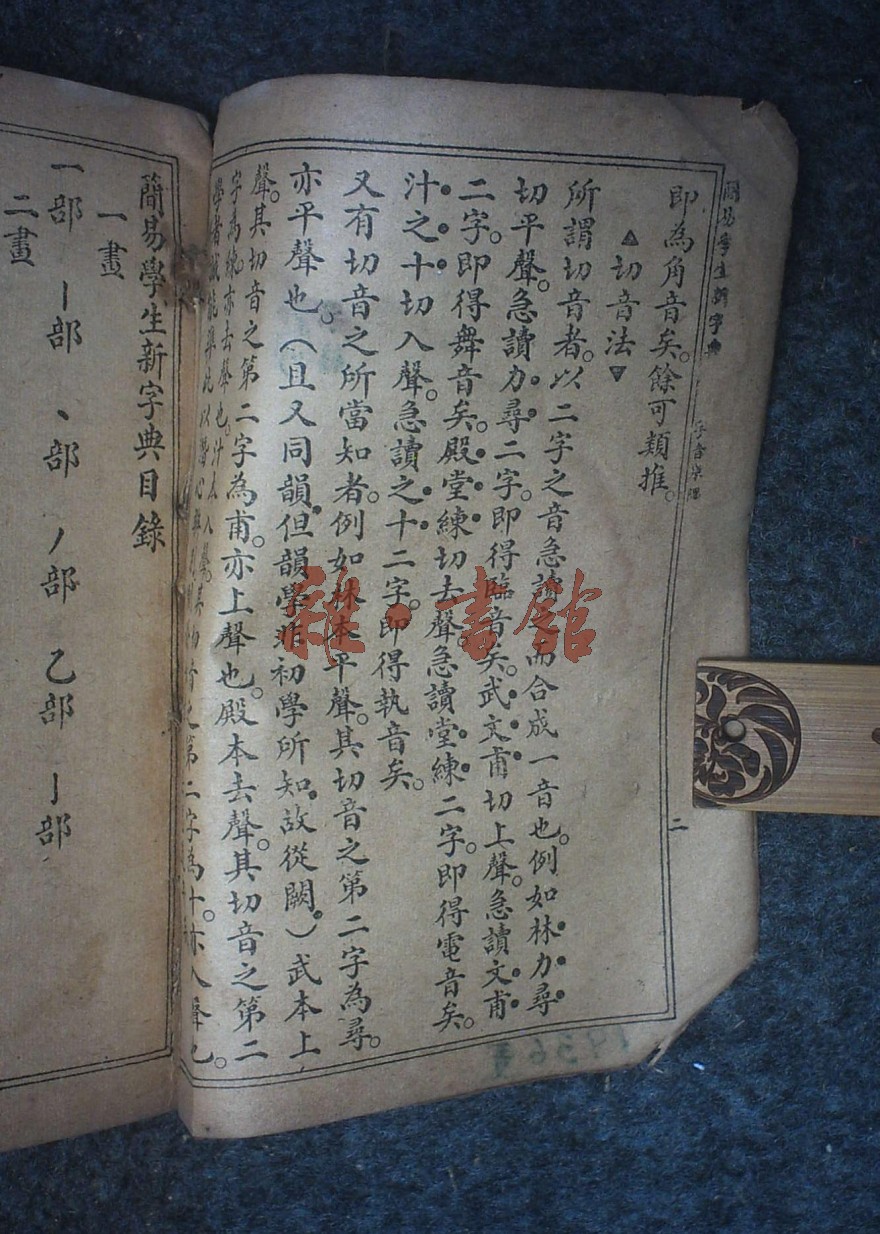 簡易學生新字典
二
即為角音矣。餘可類推。
▲切音法▼
所謂切音者。以二字之音急讀之而合成一音也。例如林力尋
切平聲。急讀力尋二字。即得臨音矣。武文甫切上聲。急讀文甫
二字。即得舞音矣。殿堂練切去聲。急讀堂練二字。即得電音矣。
汁之十切入聲。急讀之十二字。即得執音矣。
又有切音之所當知者。例如林本平聲。其切音之第二字為尋。
亦平聲也。(且又同韻。但韻學非初學所知。故從闕。)武本上
聲。其切音之第二字為甫。亦上聲也。殿本去聲。其切音之第二
字為練。亦去聲也。汁本入聲。其切音之第二字為十。亦入聲也。
簡易學生新字典目錄
一畫
一部 丨部 丶部 丿部 乙部 亅部
二畫
雜·書館